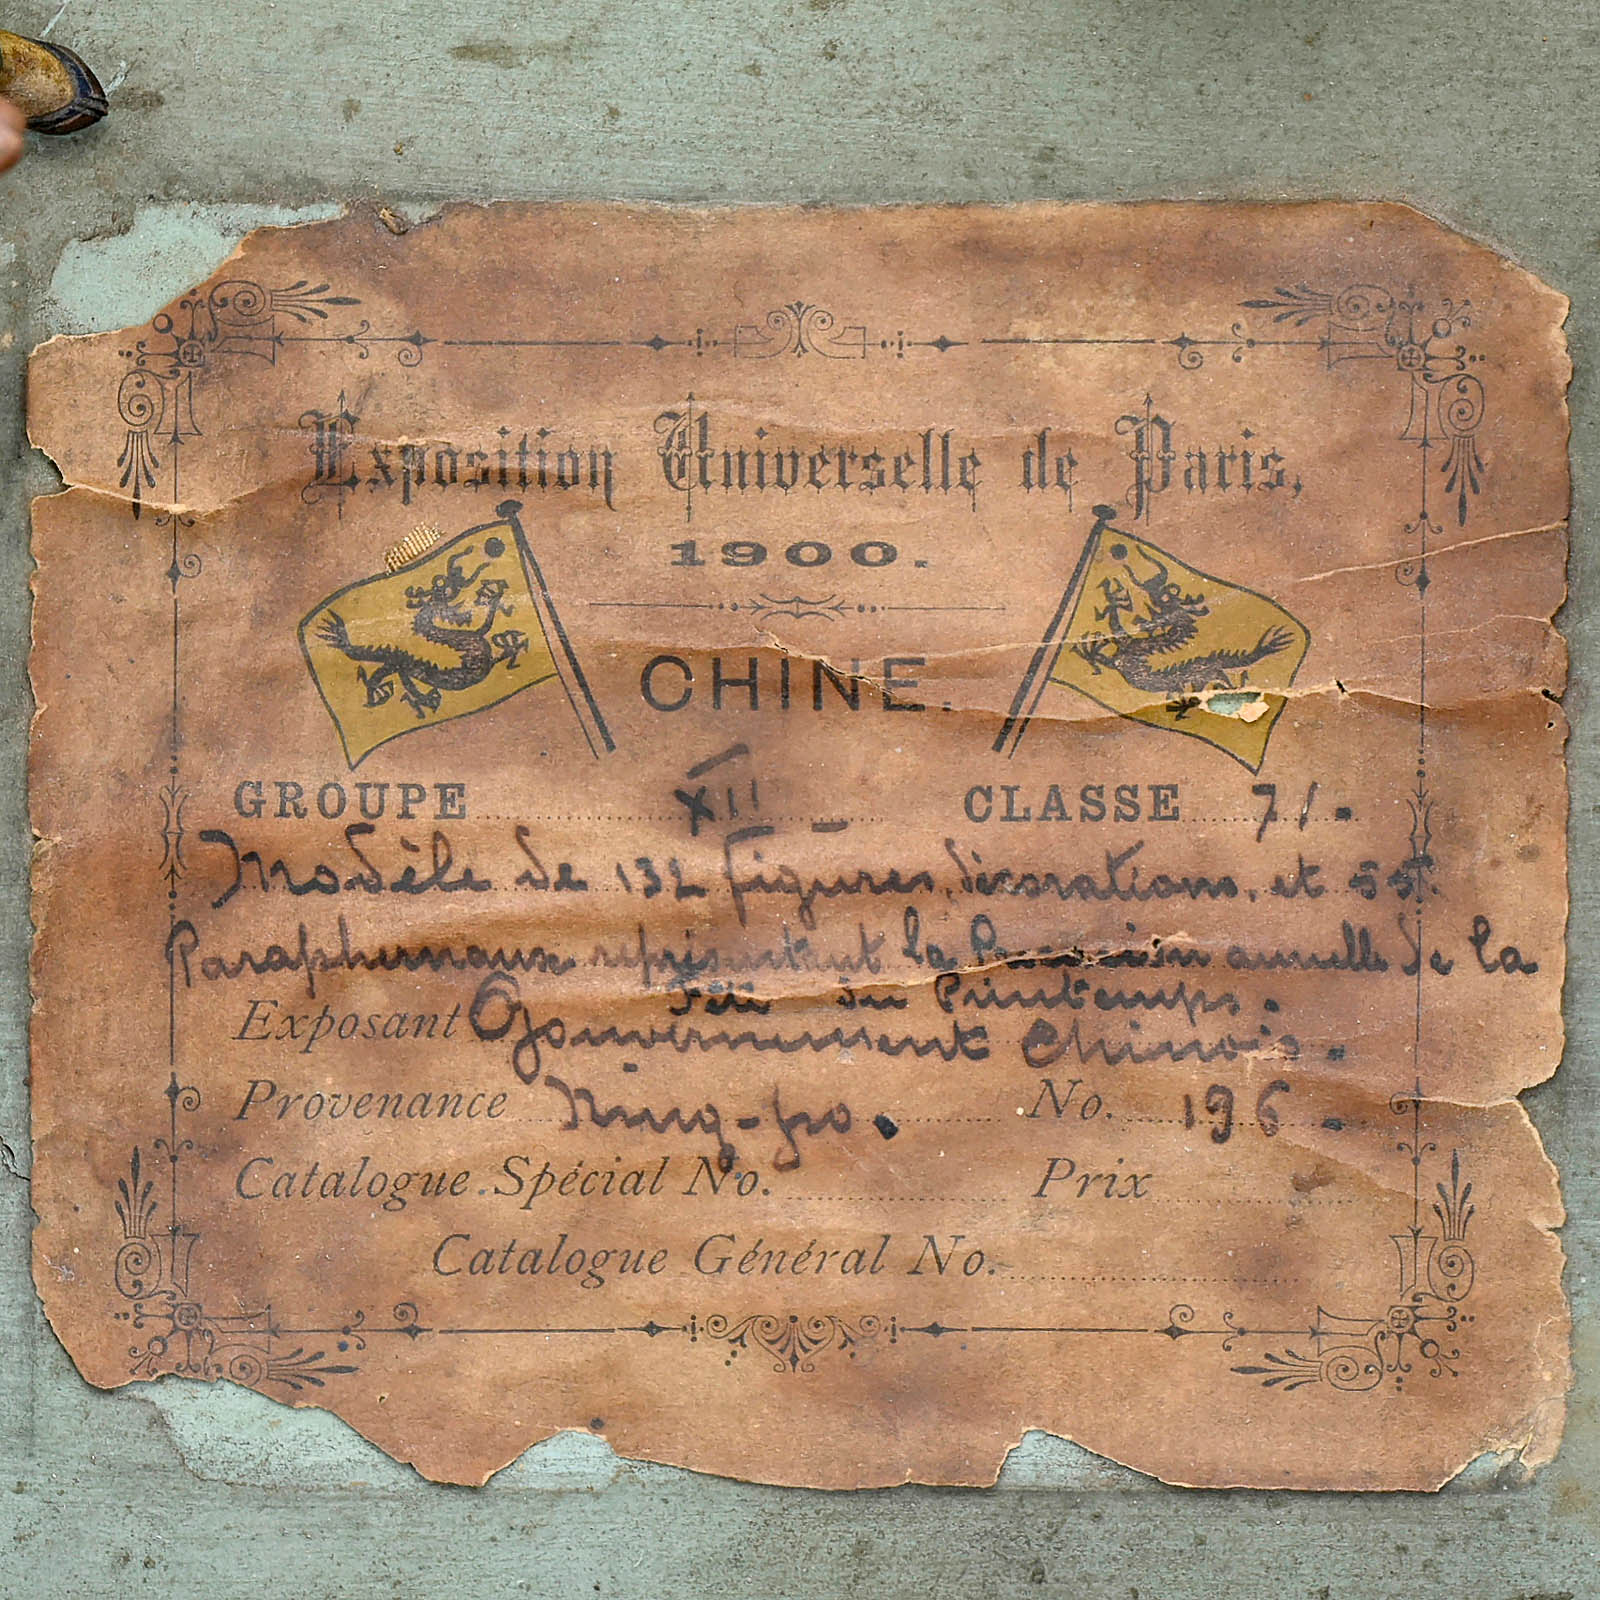 Exposition Universelle de Paris,
1900.
CHINE.
GROUPE XII CLASSE 71.
Modèle de 132 figures, décorations, et 55
Paraphernaux représentant la Procession annuelle de la
Fête du Printemps.
Exposant Gouvernement Chinois.
Provenance Ning-po. No. 196.
Catalogue Spécial No. Prix
Catalogue Général No.